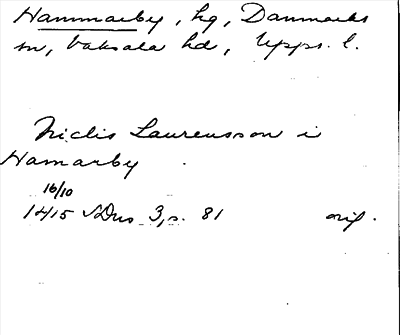 Hammarby, hg, Danmarks
sn, Vaksala hd, Upps. l.
Niclis Laurensson i
Hamarby
16/10
1415 SDns 3, s. 81 orig.